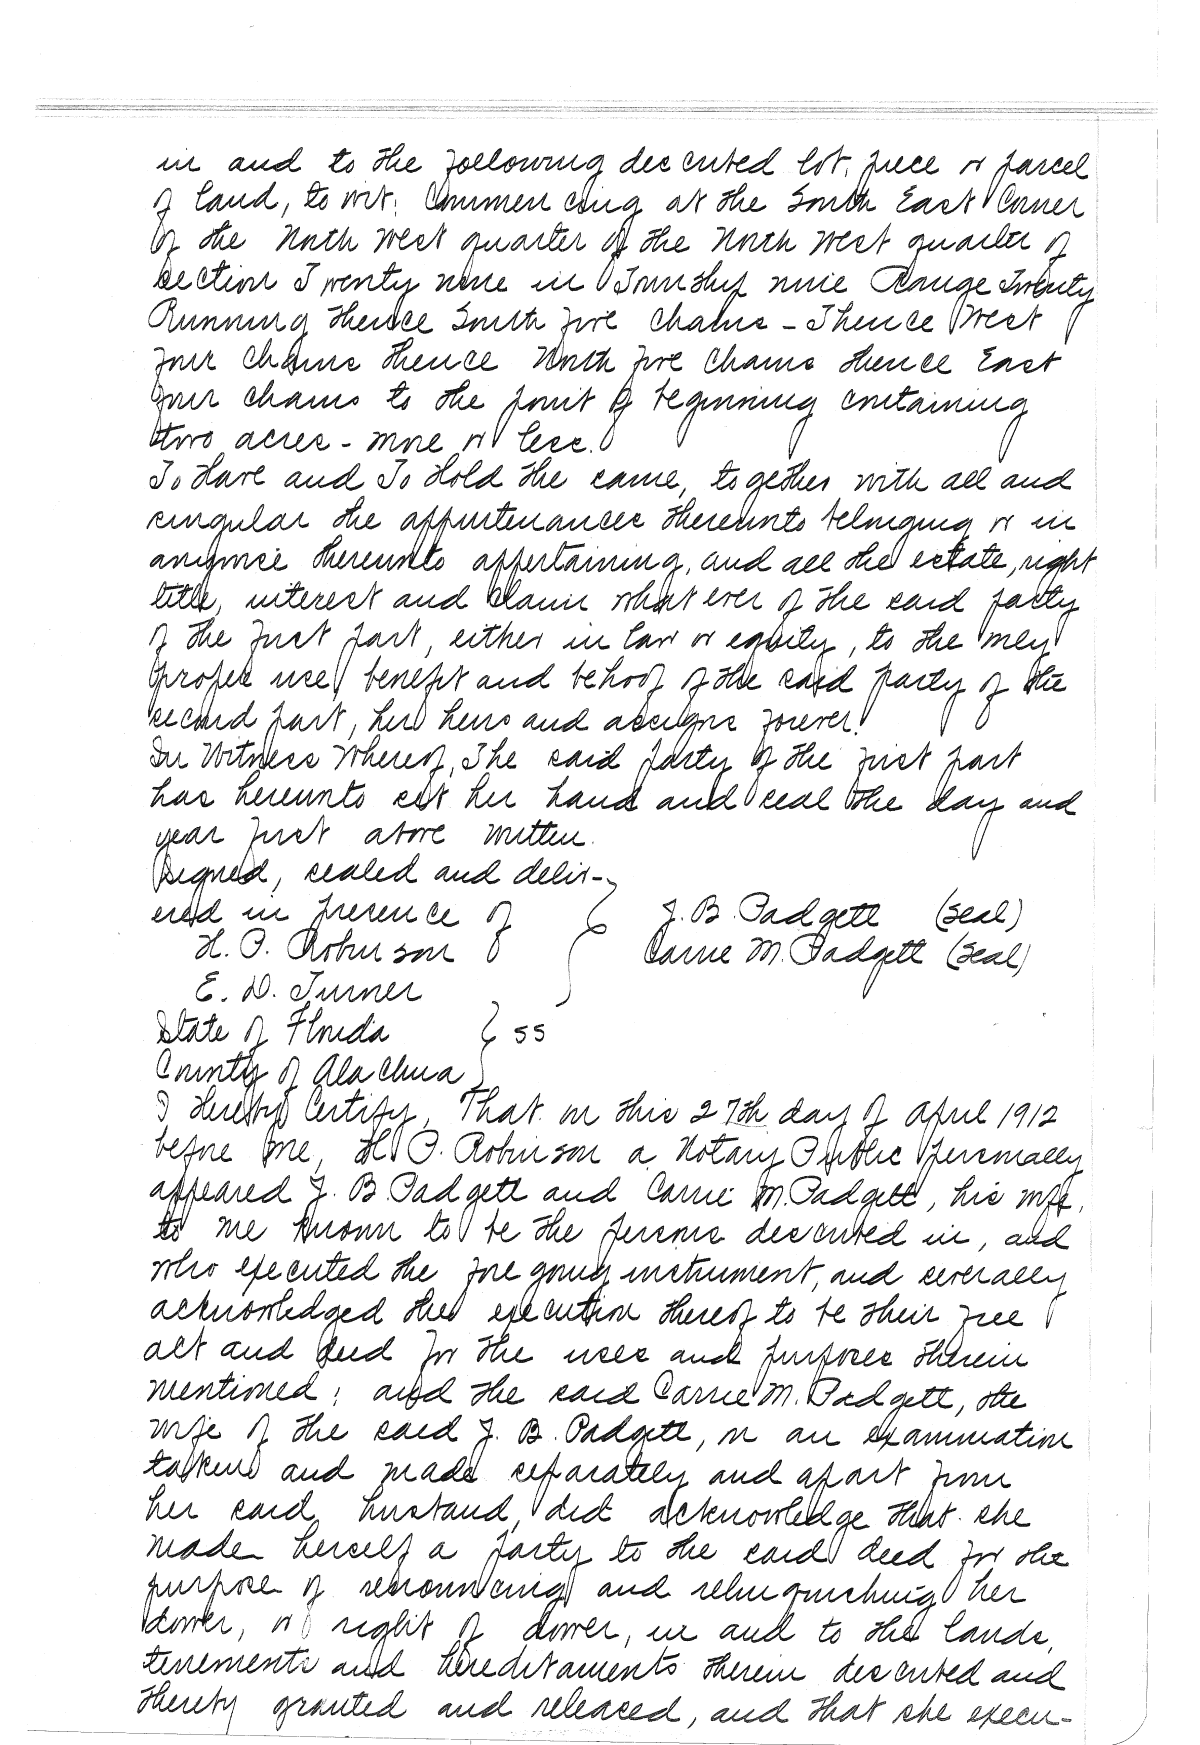 in and to the following described lot, piece or parcel
of land, to wit: Commencing at the South East Corner
of the North West quarter of the North West quarter of
section Twenty nine in Township nine Range Twenty
Running thence South five chains - Thence West
four chains thence North five chains thence East
four chains to the point of beginning containing
two acres - more or less.
To Have and To Hold the same, together with all and
singular the appurtenances thereunto belonging or in
anywise thereunto appertaining, and all the estate, right
title, interest and claim what ever of the said party
of the first part, either in law or equity, to the only
proper use, benefit and behoof of the said party of the
second part, her heirs and assigns forever.
In Witness Whereof, The said party of the first part
has hereunto set her hand and seal the day and
year first above written.
Signed, sealed and deliv-
ered in presence of } J. B. Padgett (Seal)
H. P. Robinson Carrie M. Padgett (Seal)
E. D. Turner
State of Florida } ss
County of Alachua
I Hereby Certify, That on this 27th day of April 1912
before me, H. P. Robinson a Notary Public personally
appeared J. B. Padgett and Carrie M. Padgett, his wife,
to me known to be the persons described in, and
who executed the fore going instrument, and severally
acknowledged the execution thereof to be their free
act and deed for the uses and purposes therein
mentioned; and the said Carrie M. Padgett, the
wife of the said J. B. Padgett, on an examination
taken and made separately and apart from
her said husband, did acknowledge that she
made herself a party to the said deed for the
purpose of renouncing and relinquishing her
dower, or right of dower, in and to the lands,
tenements and hereditaments therein described and
thereby granted and released, and that she execu-